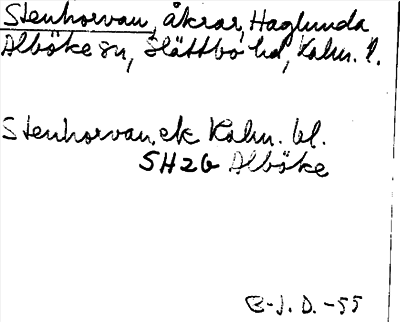 Stenhorvan, åkrar, Haglunda
Alböke sn, Slättbo hd, Kalm. l.
Stenhorvan. ek Kalm. bl.
5H2G Alböke
B-J. D. -55